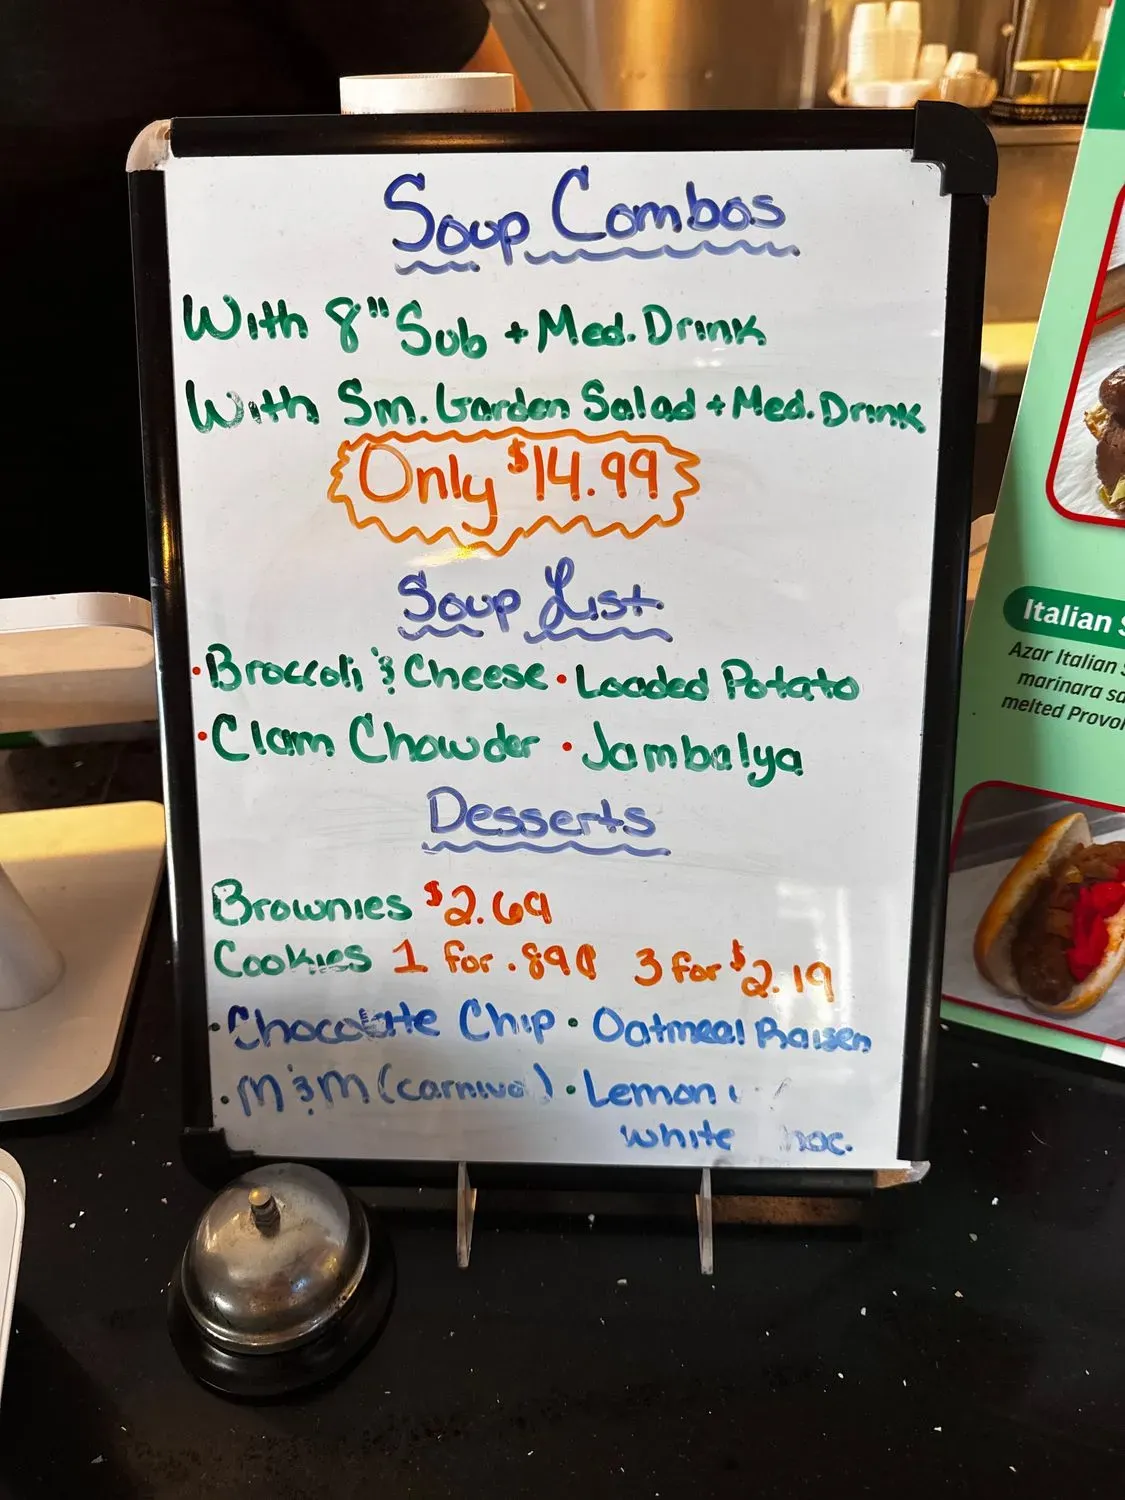 Soup Combos
With 8" Sub + Med. Drink
With Sm. Garden Salad + Med. Drink
Only $14.99
Soup List
• Broccoli & Cheese • Loaded Potato
• Clam Chowder • Jambalya
Desserts
Brownies $2.69
Cookies 1 for .89¢ 3 for $2.19
• Chocolate Chip • Oatmeal Raisen
• M&M (carnival) • Lemon
white
Italian
Azar Italian
marinara
melted